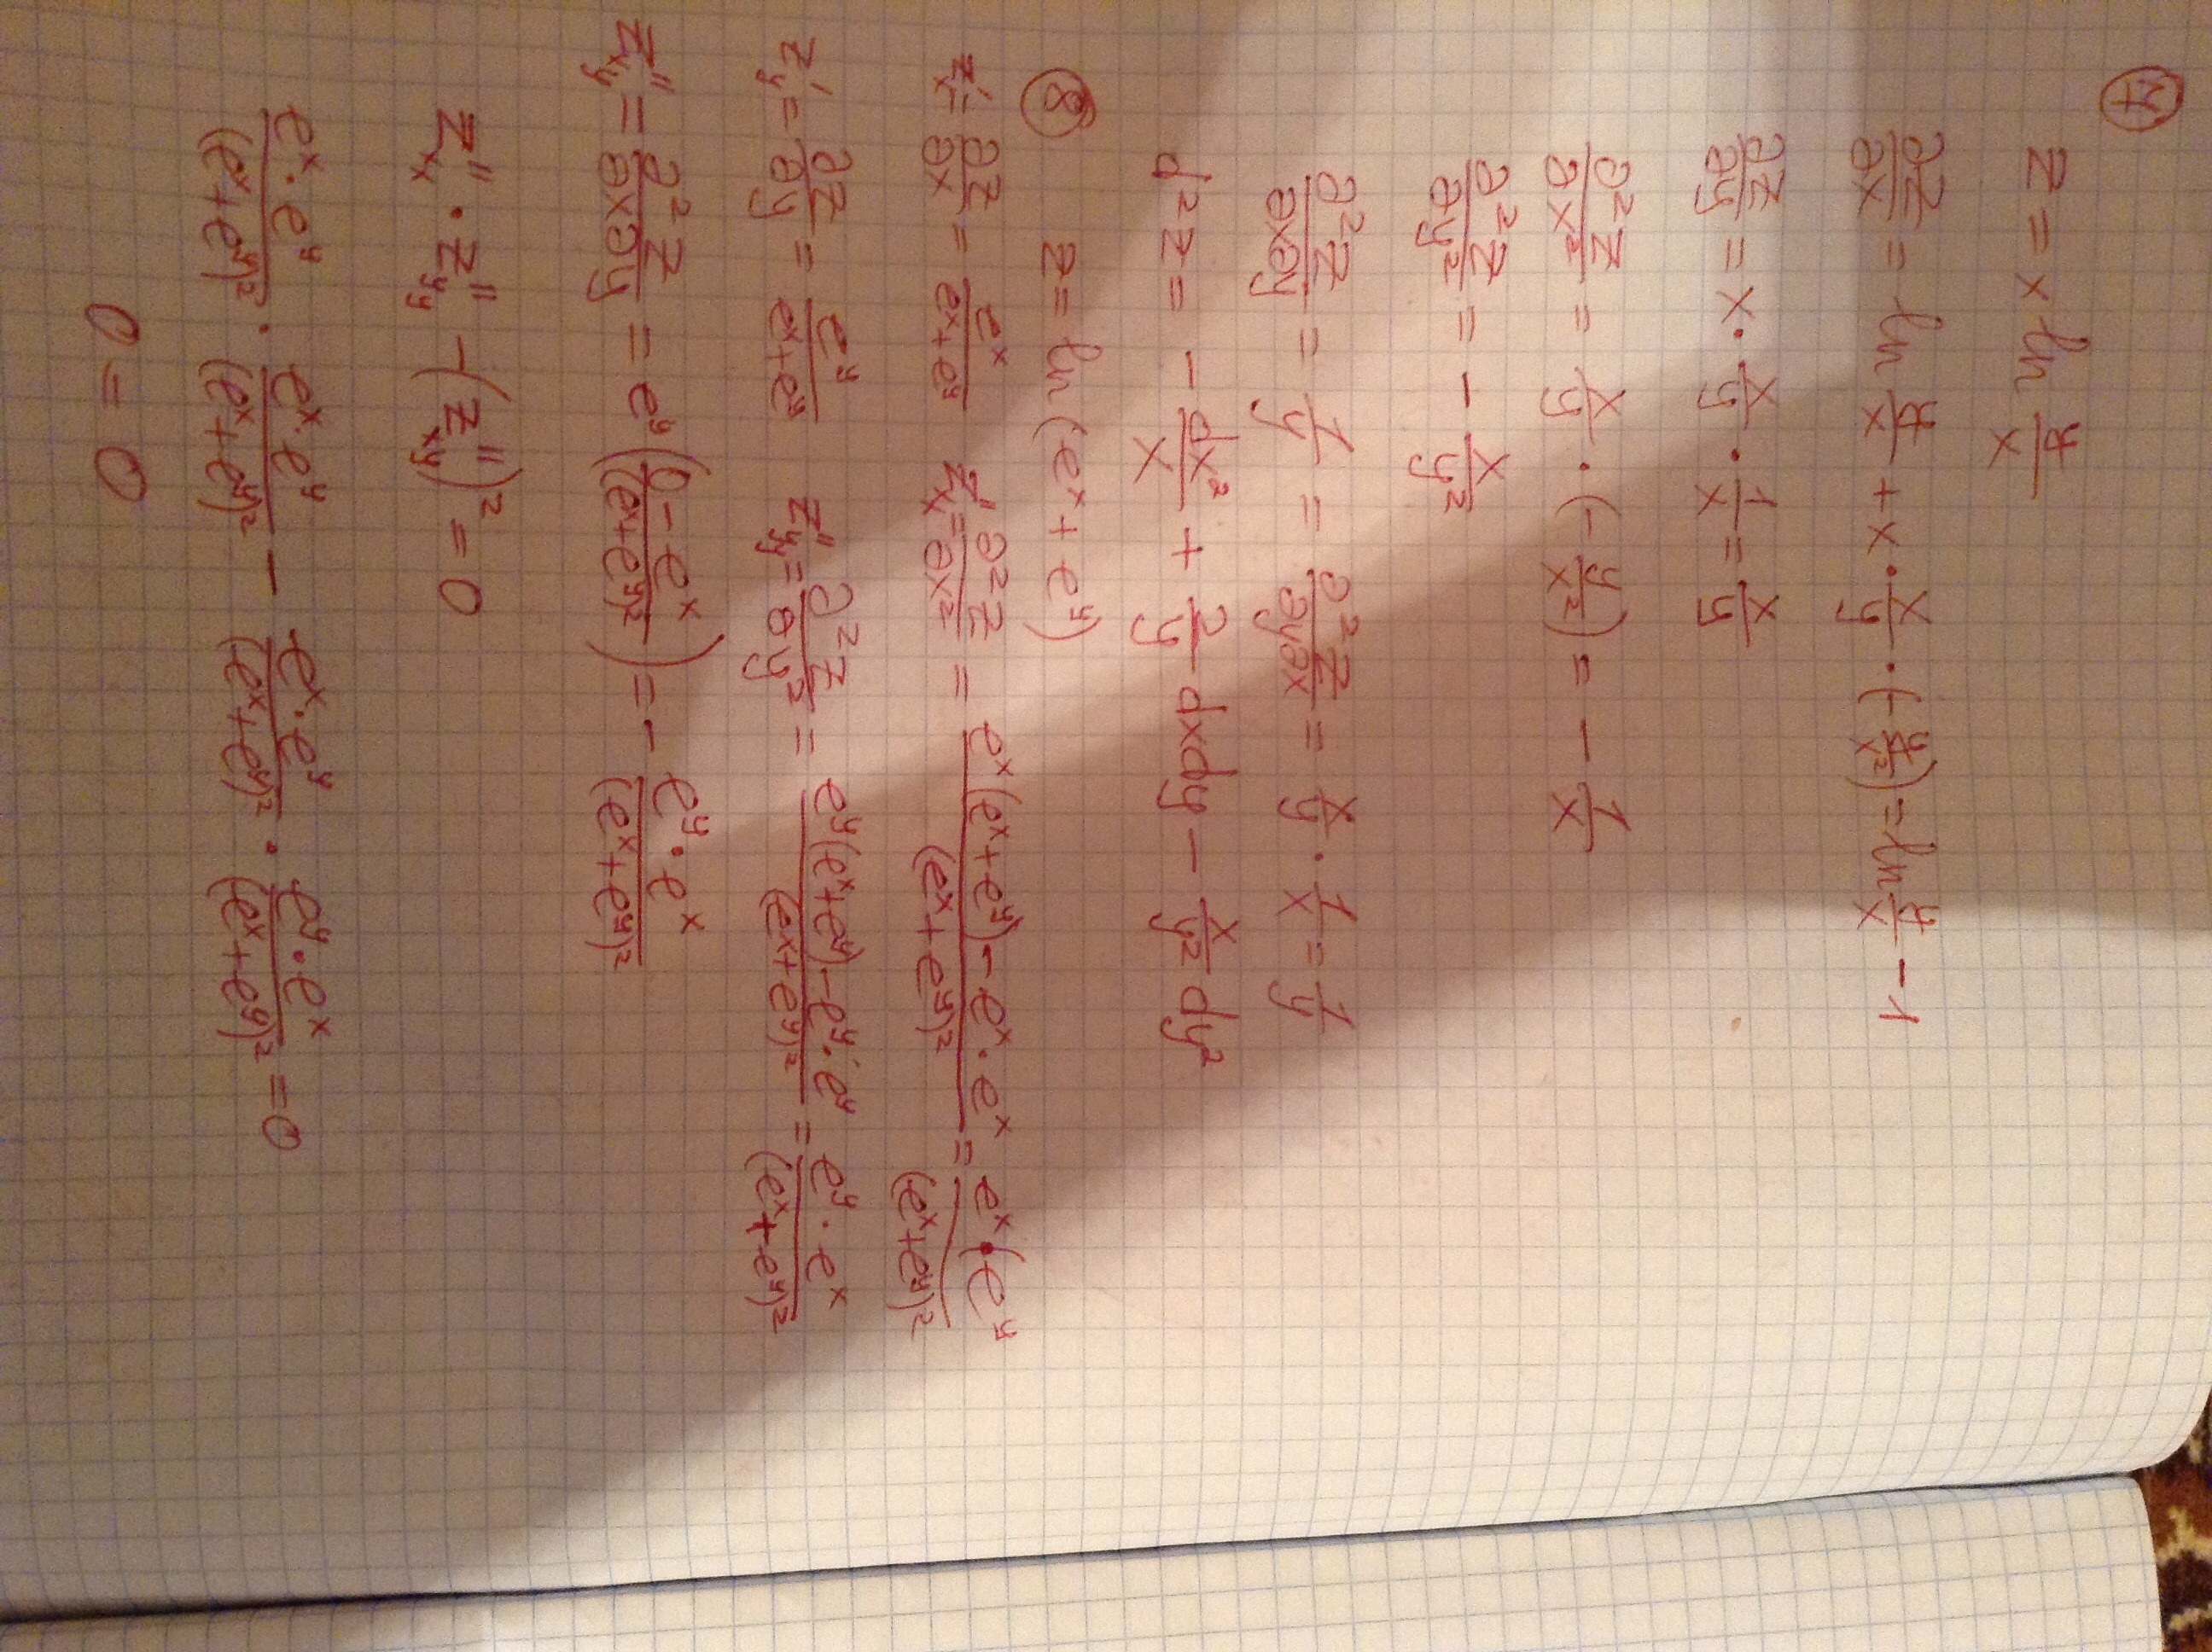 7
z = x ln y/x
∂z/∂x = ln y/x + x · x/y · (- y/x²) = ln y/x - 1
∂z/∂y = x · x/y · 1/x = x/y
∂²z/∂x² = x/y · (- y/x²) = - 1/x
∂²z/∂y² = - x/y²
∂²z/∂x∂y = 1/y = ∂²z/∂y∂x = x/y · 1/x = 1/y
d²z = - dx²/x + 2/y dxdy - x/y² dy²
8 z = ln(eˣ + eʸ)
z'ₓ = ∂z/∂x = eˣ/(eˣ+eʸ) z''ₓ = ∂²z/∂x² = (eˣ(eˣ+eʸ) - eˣ·eˣ)/(eˣ+eʸ)² = eˣ·(eʸ/(eˣ+eʸ)²
z'_y = ∂z/∂y = eʸ/(eˣ+eʸ) z''_yy = ∂²z/∂y² = (eʸ(eˣ+eʸ) - eʸ·eʸ)/(eˣ+eʸ)² = eʸ·eˣ/(eˣ+eʸ)²
z''_xy = ∂²z/∂x∂y = eʸ((0-eˣ)/(eˣ+eʸ)²) = - eʸ·eˣ/(eˣ+eʸ)²
z''_xx · z''_yy - (z''_xy)² = 0
eˣ·eʸ/(eˣ+eʸ)² · eˣ·eʸ/(eˣ+eʸ)² - eˣ·eʸ/(eˣ+eʸ)² · eʸ·eˣ/(eˣ+eʸ)² = 0
0 = 0